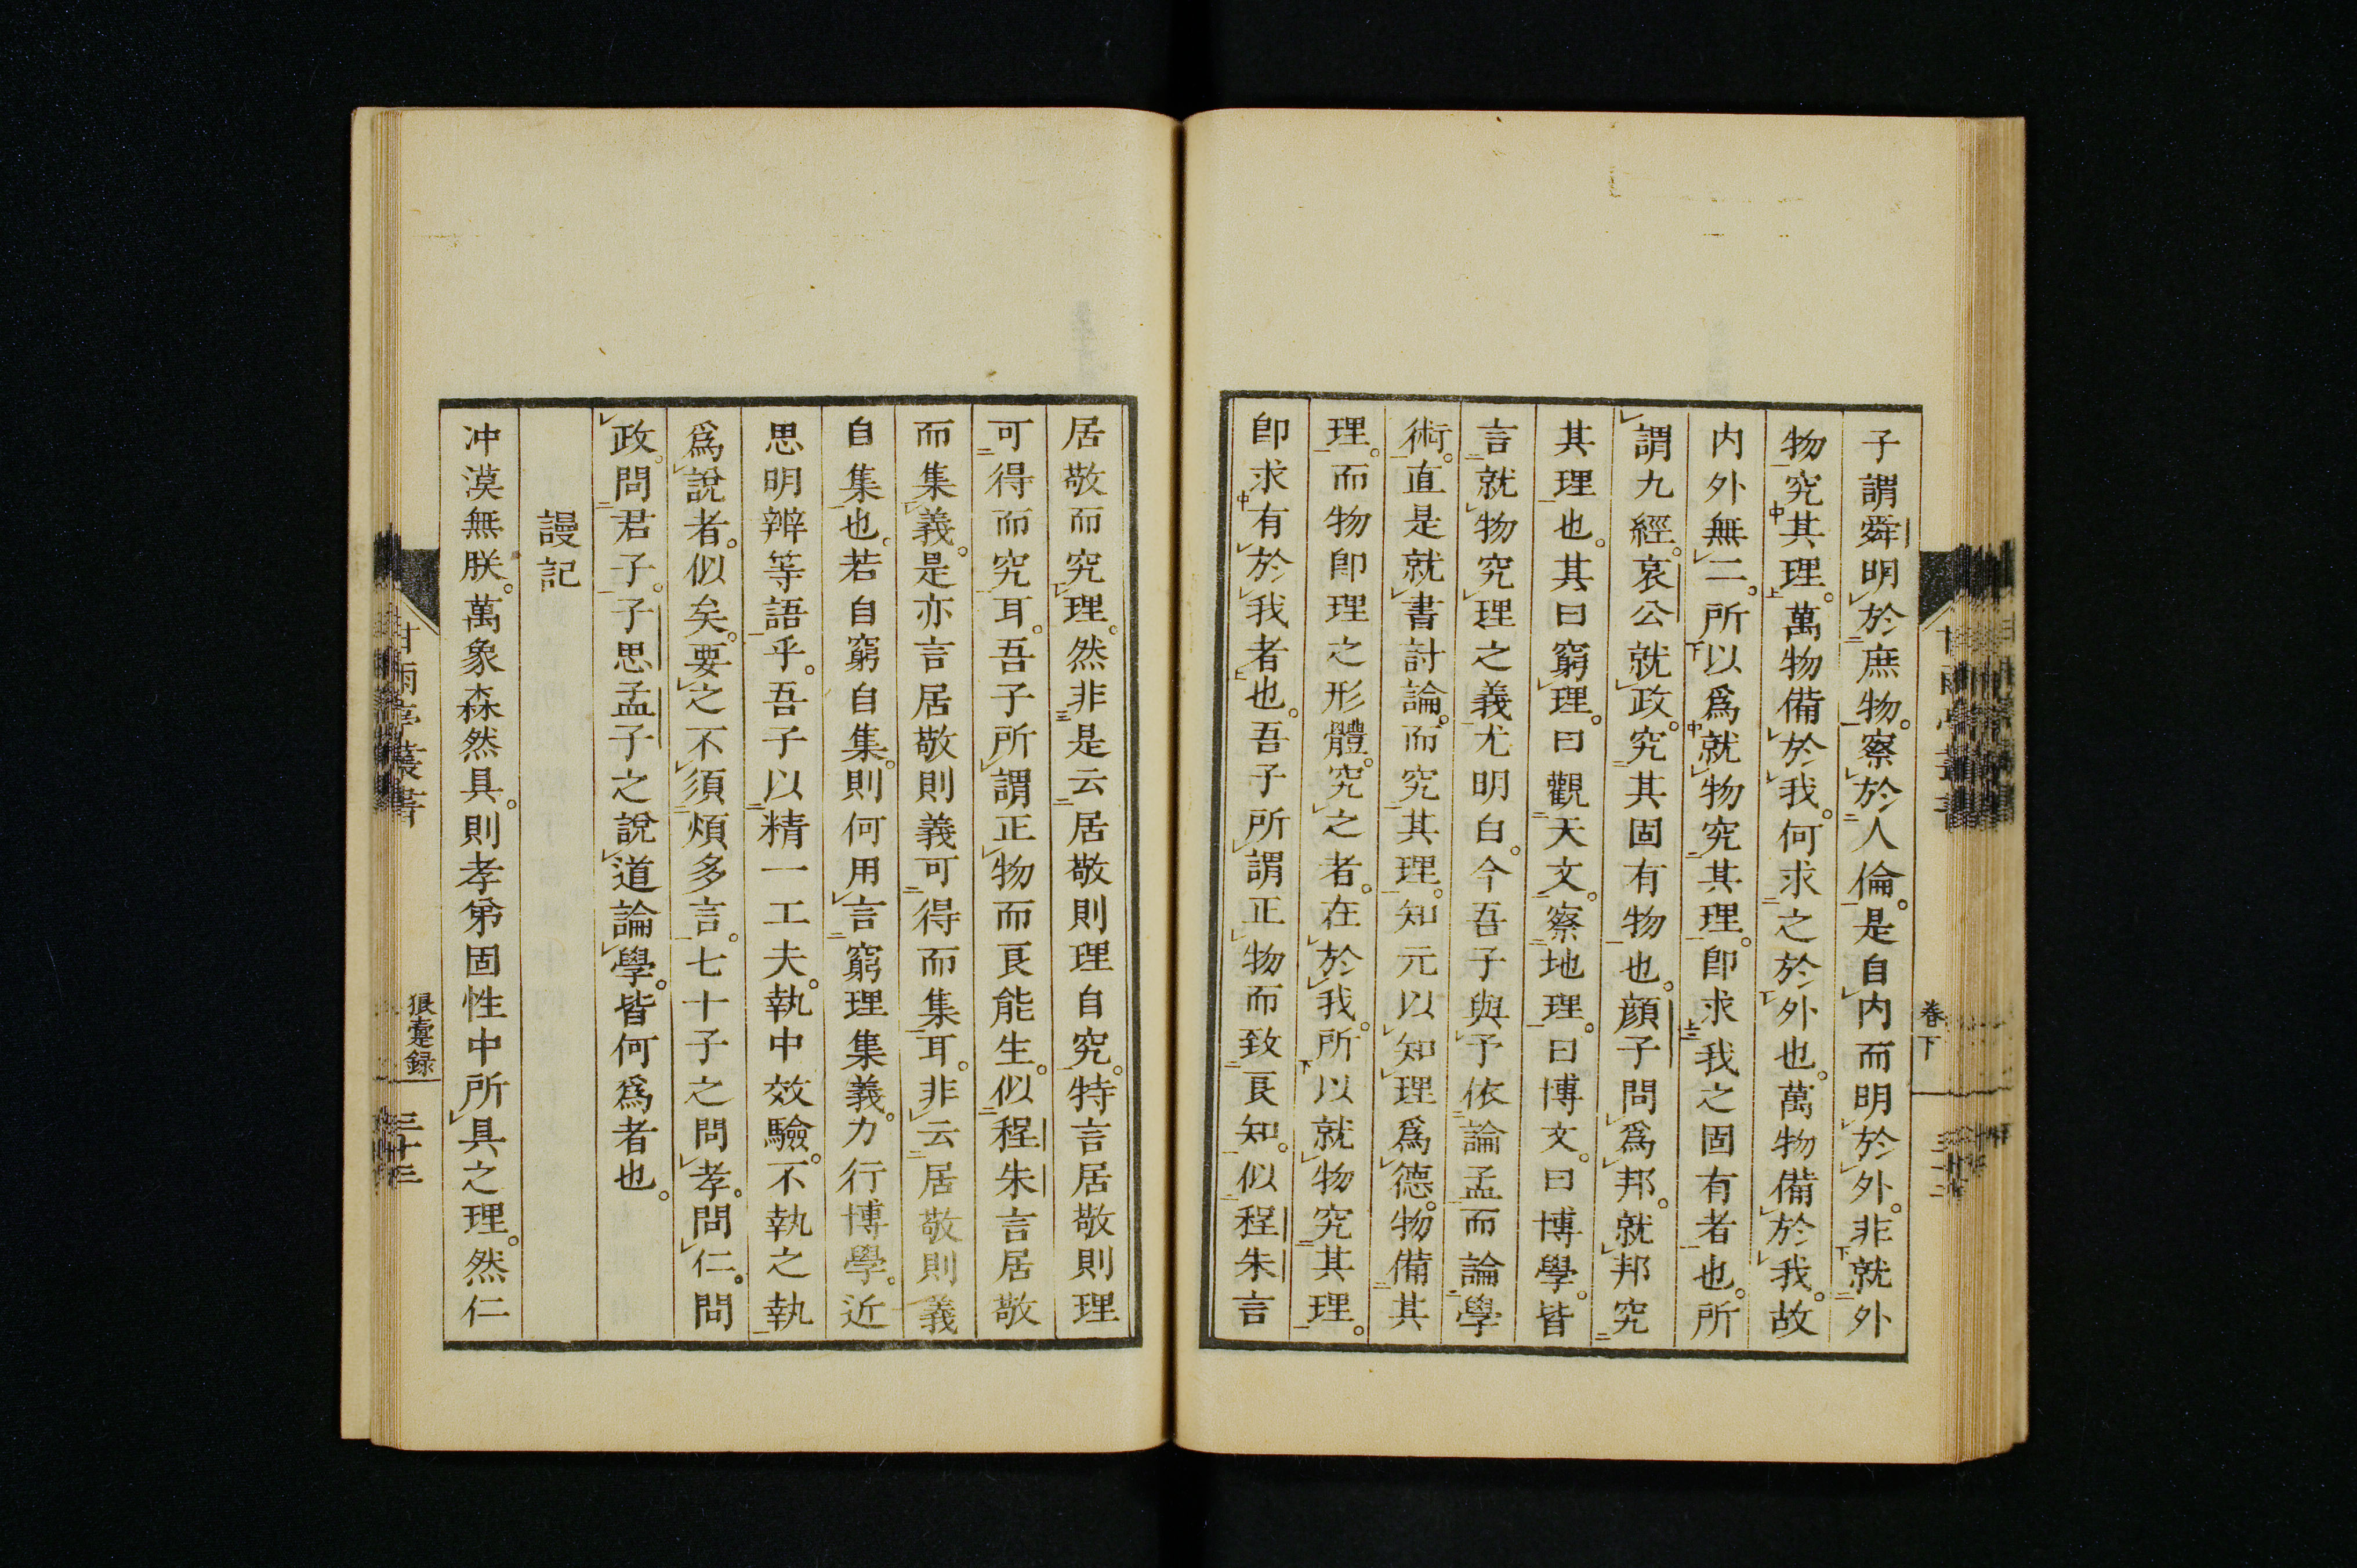 子謂舜明於庶物。察於人倫。是自内而明於外。非就外
物究其理。萬物備於我。何求之於外也。萬物備於我。故
内外無二。所以爲就物究其理。卽求我之固有者也。所
謂九經。哀公就政。究其固有物也。顔子問爲邦。就邦究
其理也。其曰窮理。曰觀天文。察地理。曰博文。曰博學。皆
言就物究理之義尤明白。今吾子與予依論孟而論學
術。直是就書討論。而究其理。知元以知理爲德。物備其
理。而物卽理之形體。究之者。在於我。所以就物究其理。
卽求有於我者也。吾子所謂正物而致良知。似程朱言
居敬而究理。然非是云居敬則理自究。特言居敬則理
可得而究耳。吾子所謂正物而良能生。似程朱言居敬
而集義。是亦言居敬則義可得而集耳。非云居敬則義
自集也。若自窮自集。則何用言窮理集義。力行博學。近
思明辨等語乎。吾子以精一工夫。執中效驗。不執之執
爲說者。似矣。要之不須煩多言。七十子之問孝。問仁。問
政。問君子。子思孟子之說道論學。皆何爲者也。
謾記
冲漠無朕。萬象森然具。則孝弟固性中所具之理。然仁
卷下
甘雨亭叢書
狼疐録
三十三